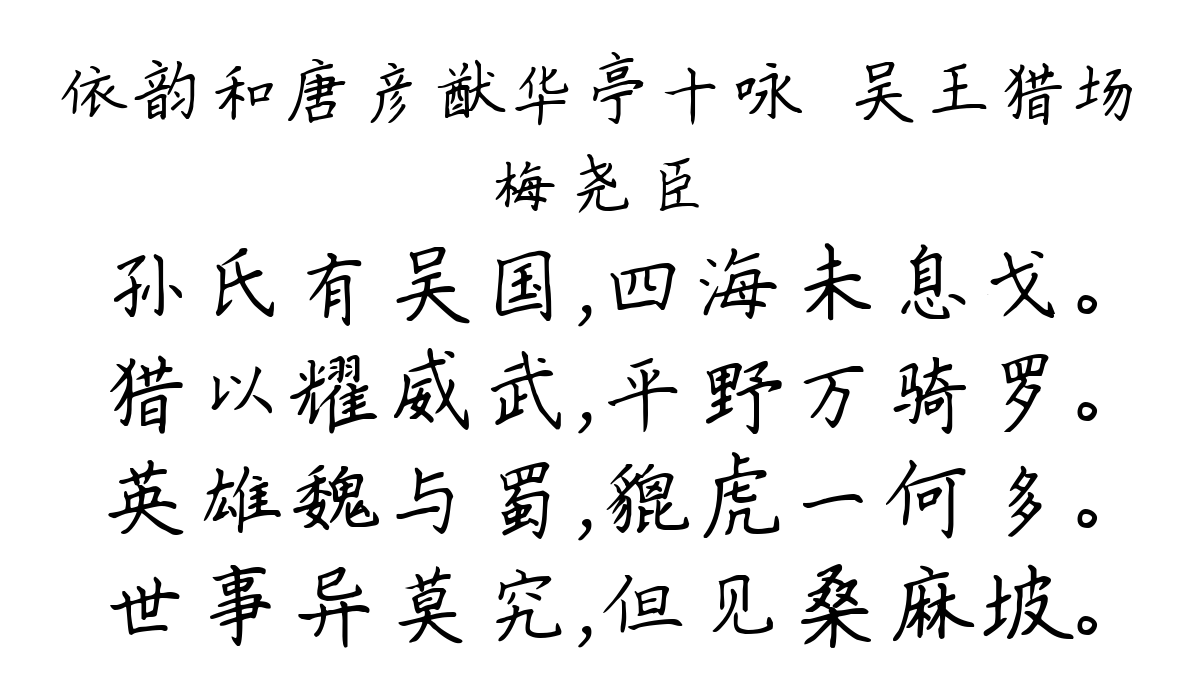 依韵和唐彦猷华亭十咏 吴王猎场
梅尧臣
孙氏有吴国,四海未息戈。
猎以耀威武,平野万骑罗。
英雄魏与蜀,貔虎一何多。
世事异莫究,但见桑麻坡。